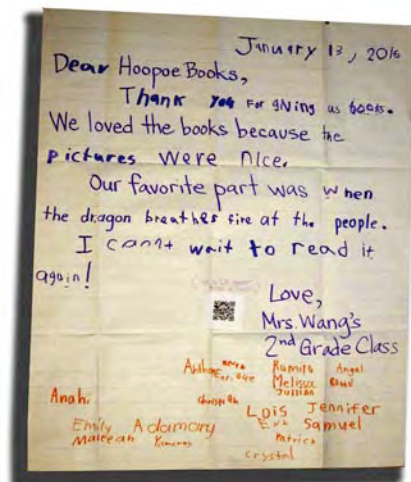 January 13, 2016
Dear Hoopoe Books,
Thank you for giving us books.
We loved the books because the
pictures were nice.
Our favorite part was when
the dragon breathes fire at the people.
I can't wait to read it
again!
Love,
Mrs. Wang's
2nd Grade Class
Angel
Melissa
Anahi
Christian
Lois Jennifer
Emily Adamary
Samuel
Patrick
Crystal